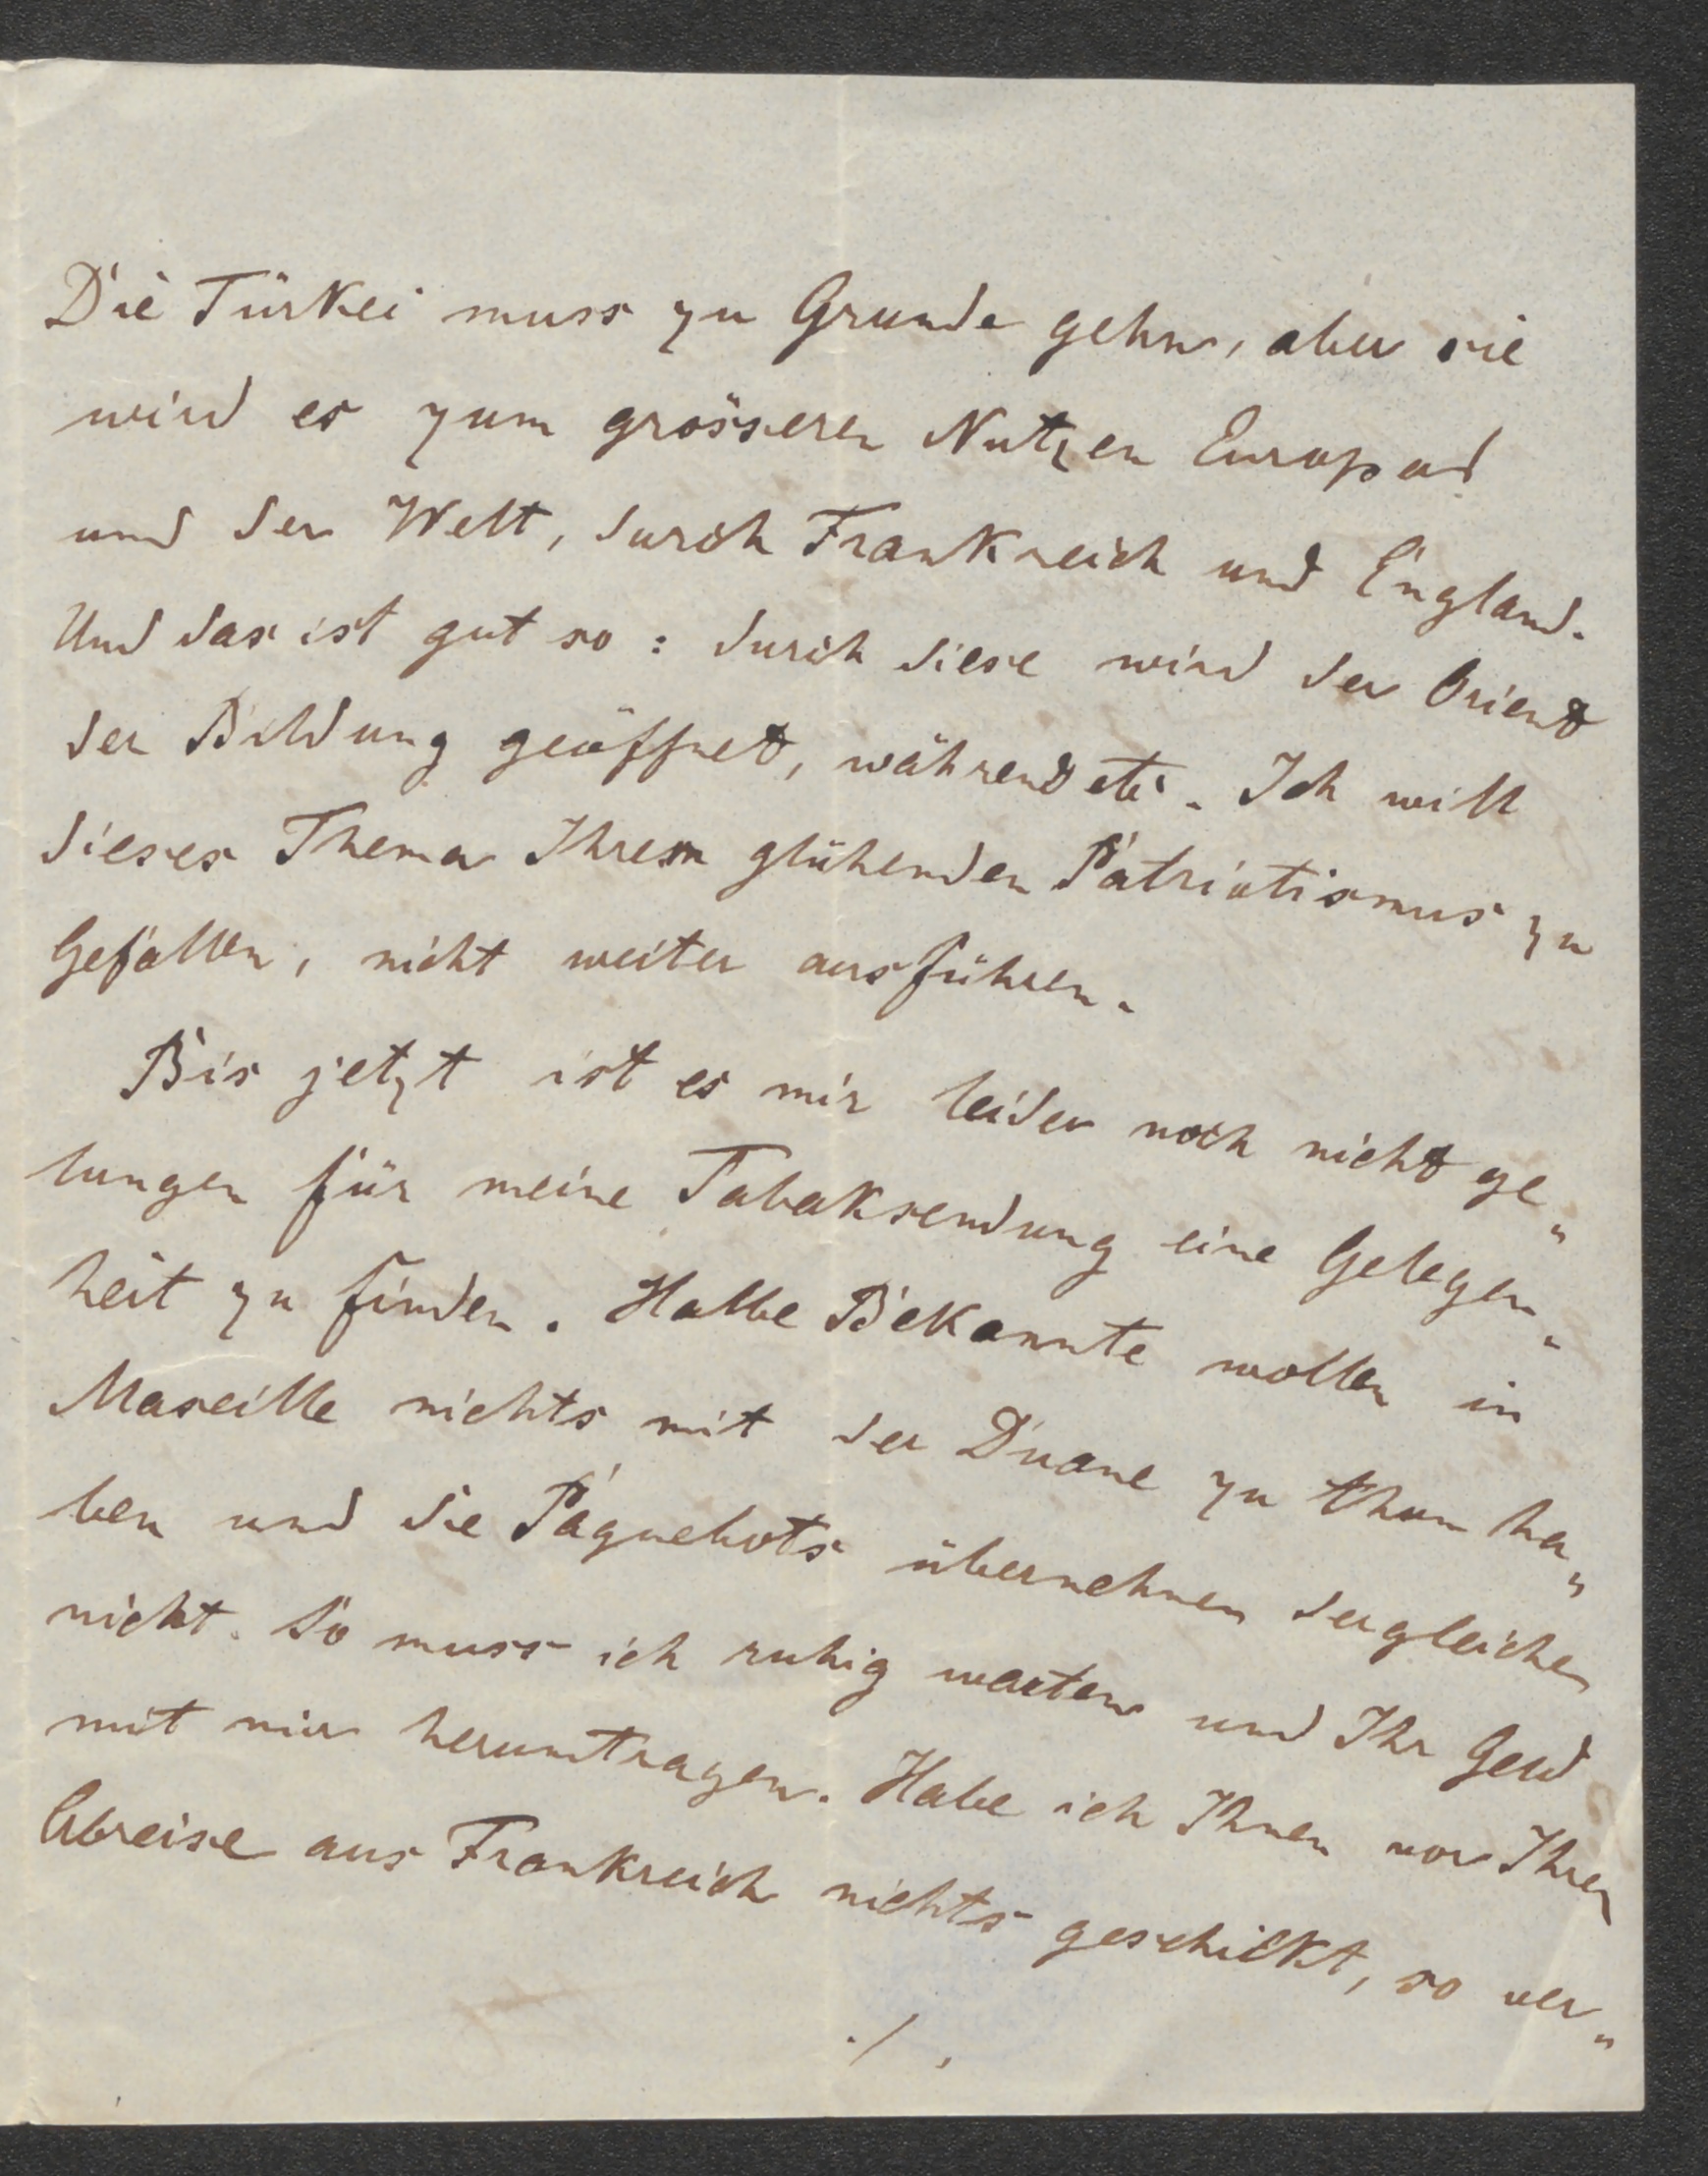 Die Türkei muss zu Grunde gehn, aber sie
wird es zum grösseren Nutzen Europas
und der Welt, durch Frankreich und England.
Und das ist gut so: durch diese wird der Orient
der Bildung geöffnet, während etc. Ich will
dieses Thema Ihrem glühenden Patriotismus zu
Gefallen, nicht weiter ausführen.
Bis jetzt ist es mir leider noch nicht ge„
lungen für meine Tabaksendung eine Gelegen„
heit zu finden. Halbe Bekannte wollen in
Maseille nichts mit der Duane zu thun ha„
ben und die Paquebots übernehmen dergleichen
nicht. So muss ich ruhig warten und Ihr Geld
mit mir herumtragen. Habe ich Ihnen vor Ihrer
Abreise aus Frankreich nichts geschikt, so ver„
./.